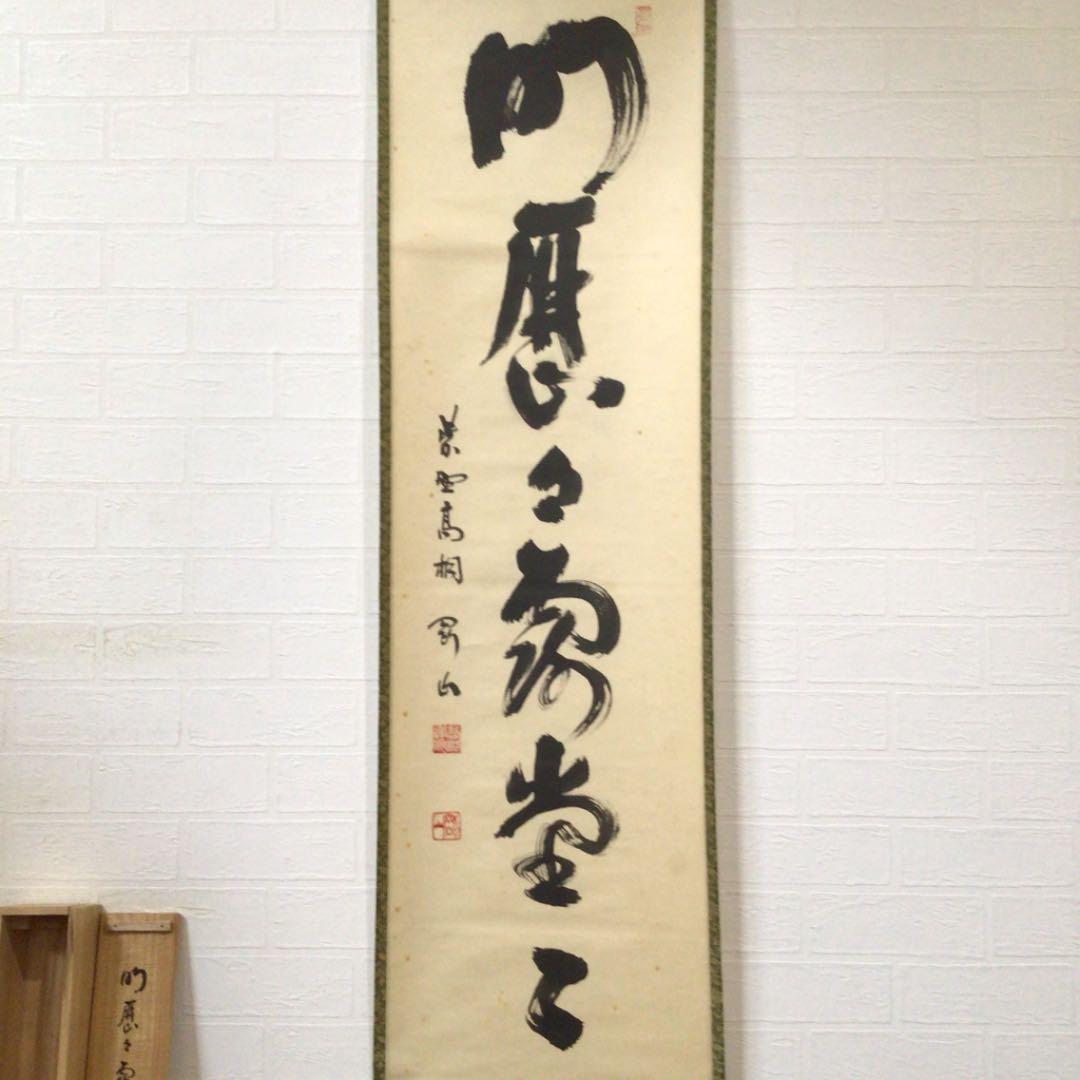 明歴々露堂々
紫野高桐 剛山
明歴々露